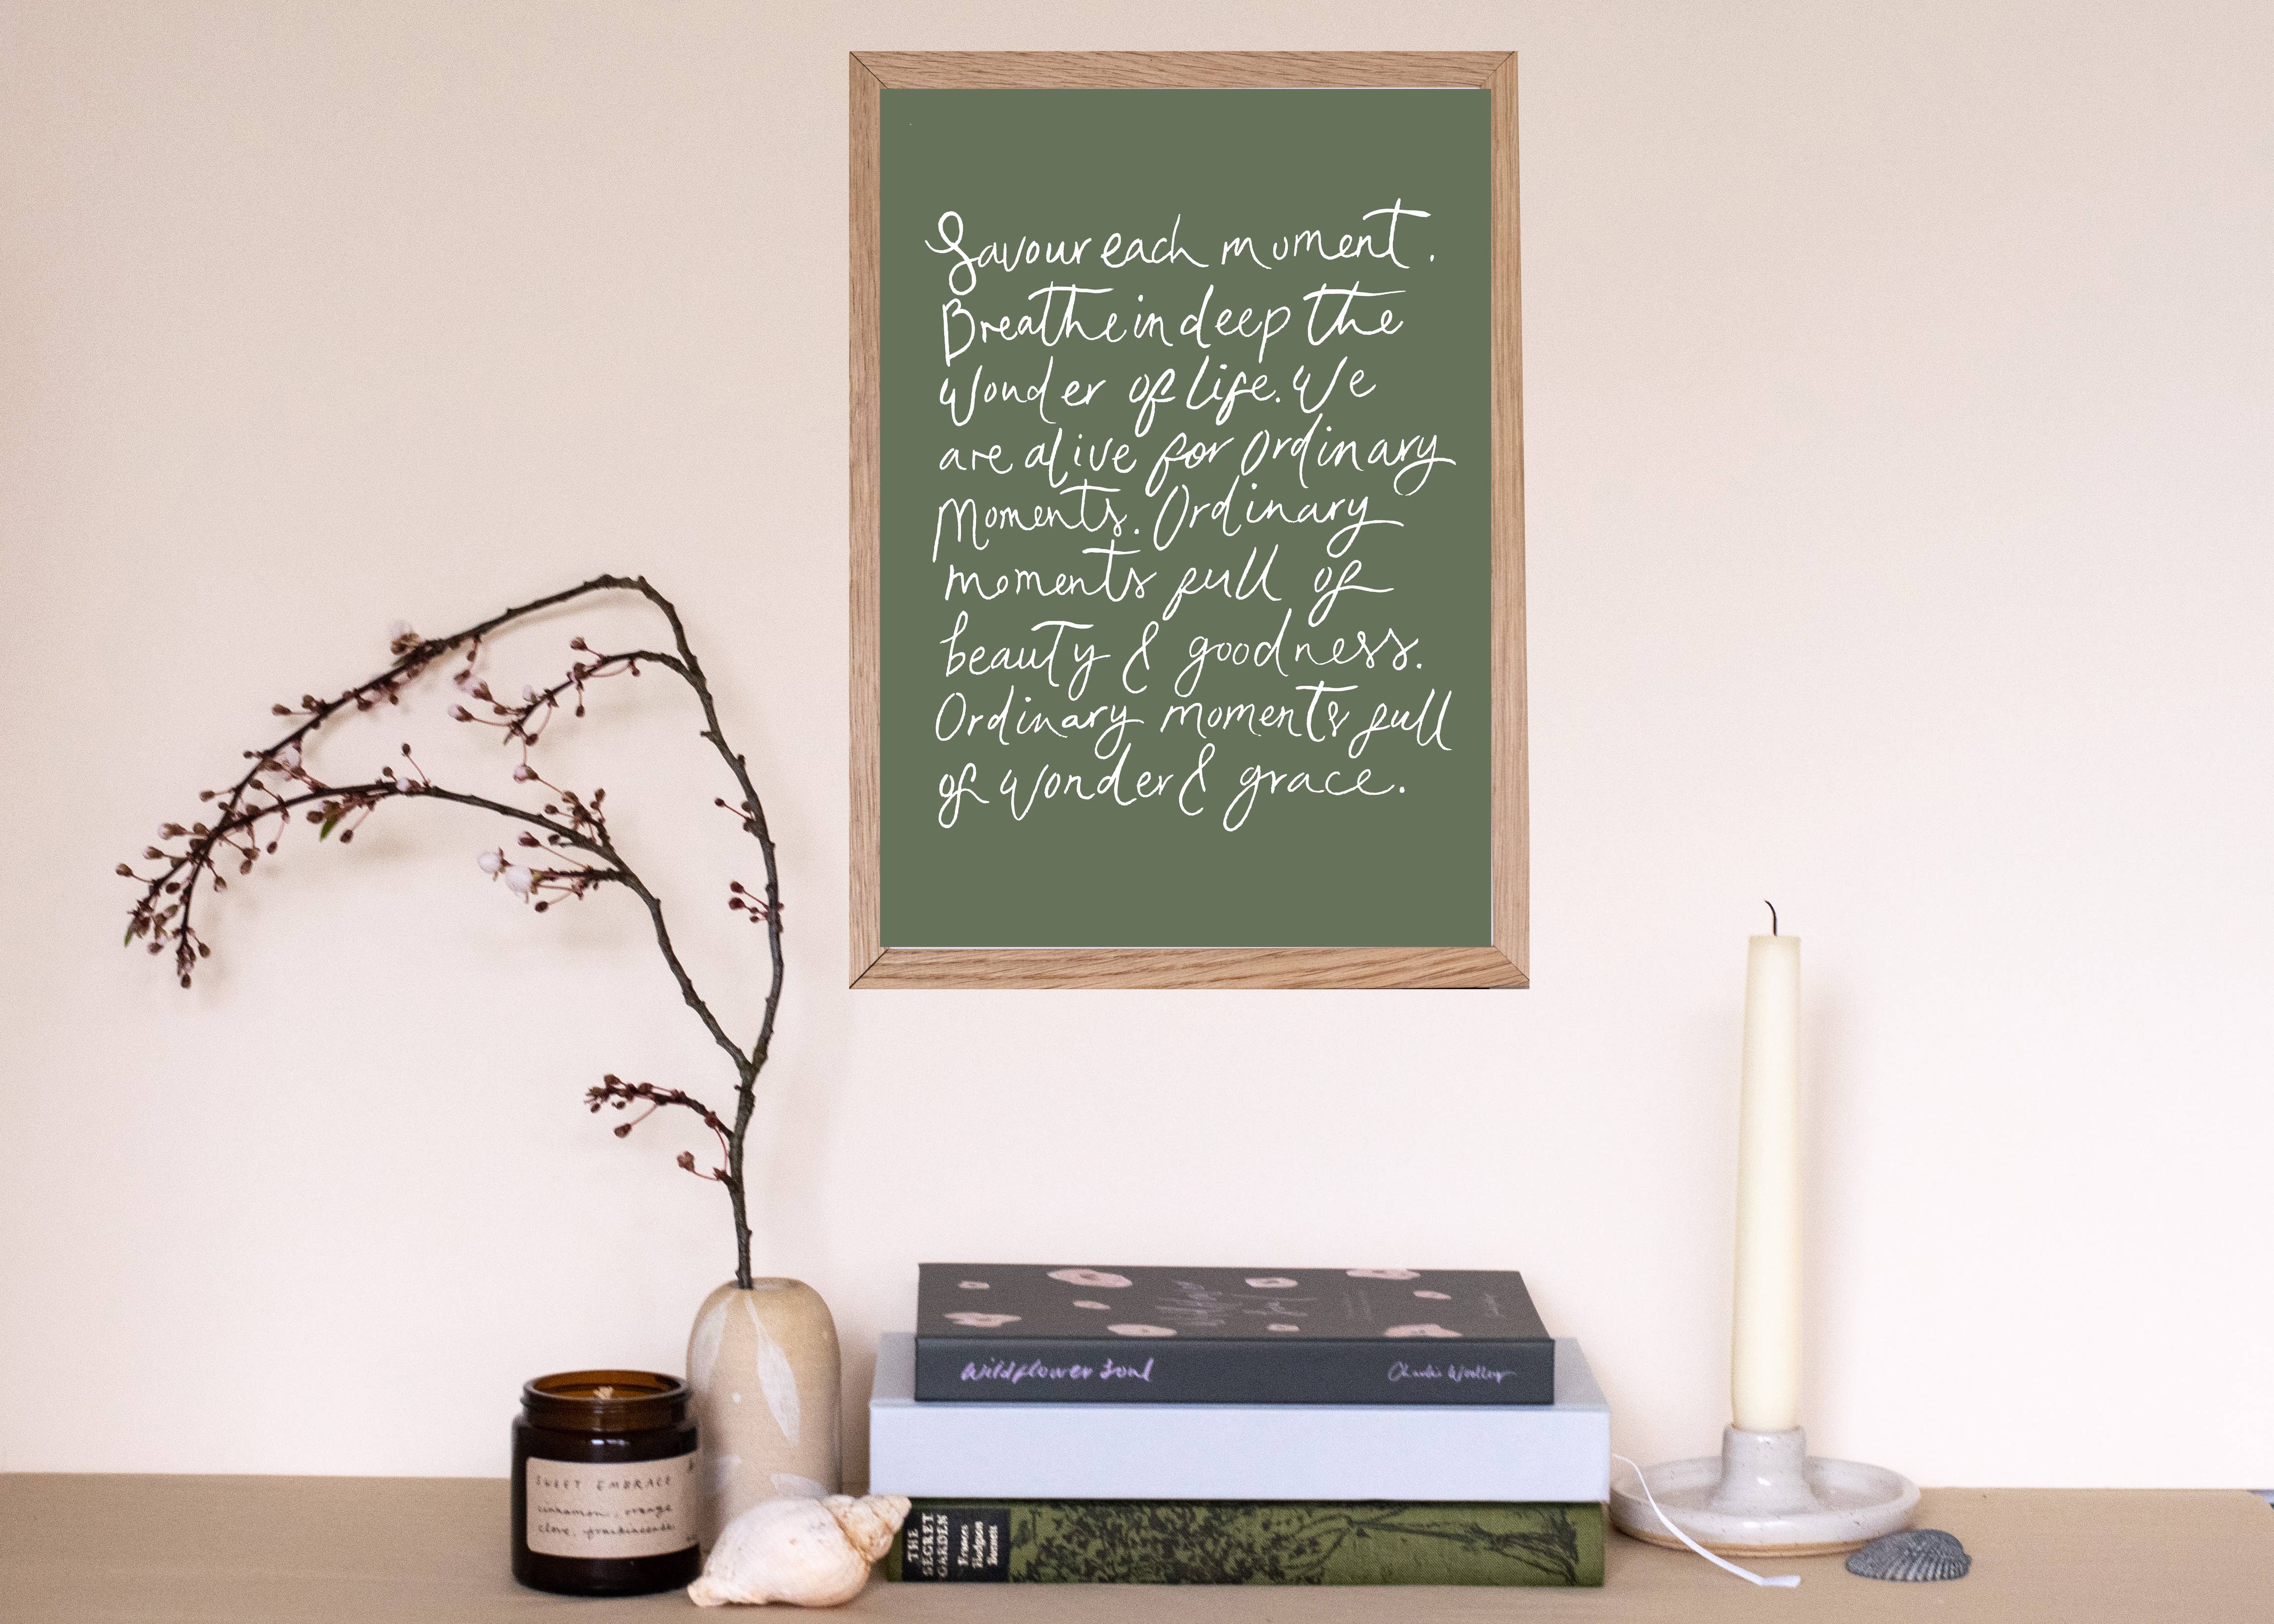 Savour each moment.
Breathe in deep the
wonder of life. We
are alive for Ordinary
Moments. Ordinary
moments full of
beauty & goodness.
Ordinary moments full
of wonder & grace.
Wildflower Soul
Charlie Woolley
SWEET EMBRACE
cinnamon, orange
clove, frankincense
THE
SECRET
GARDEN
Frances
Hodgson
Burnett